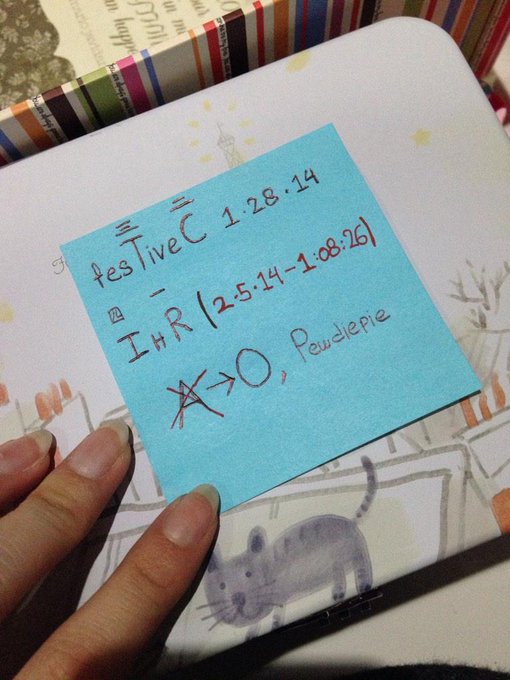 三 二
fesTiveC 1.28.14
四 一
IHR (2.5.14-1:08:26)
A→O, Pewdiepie